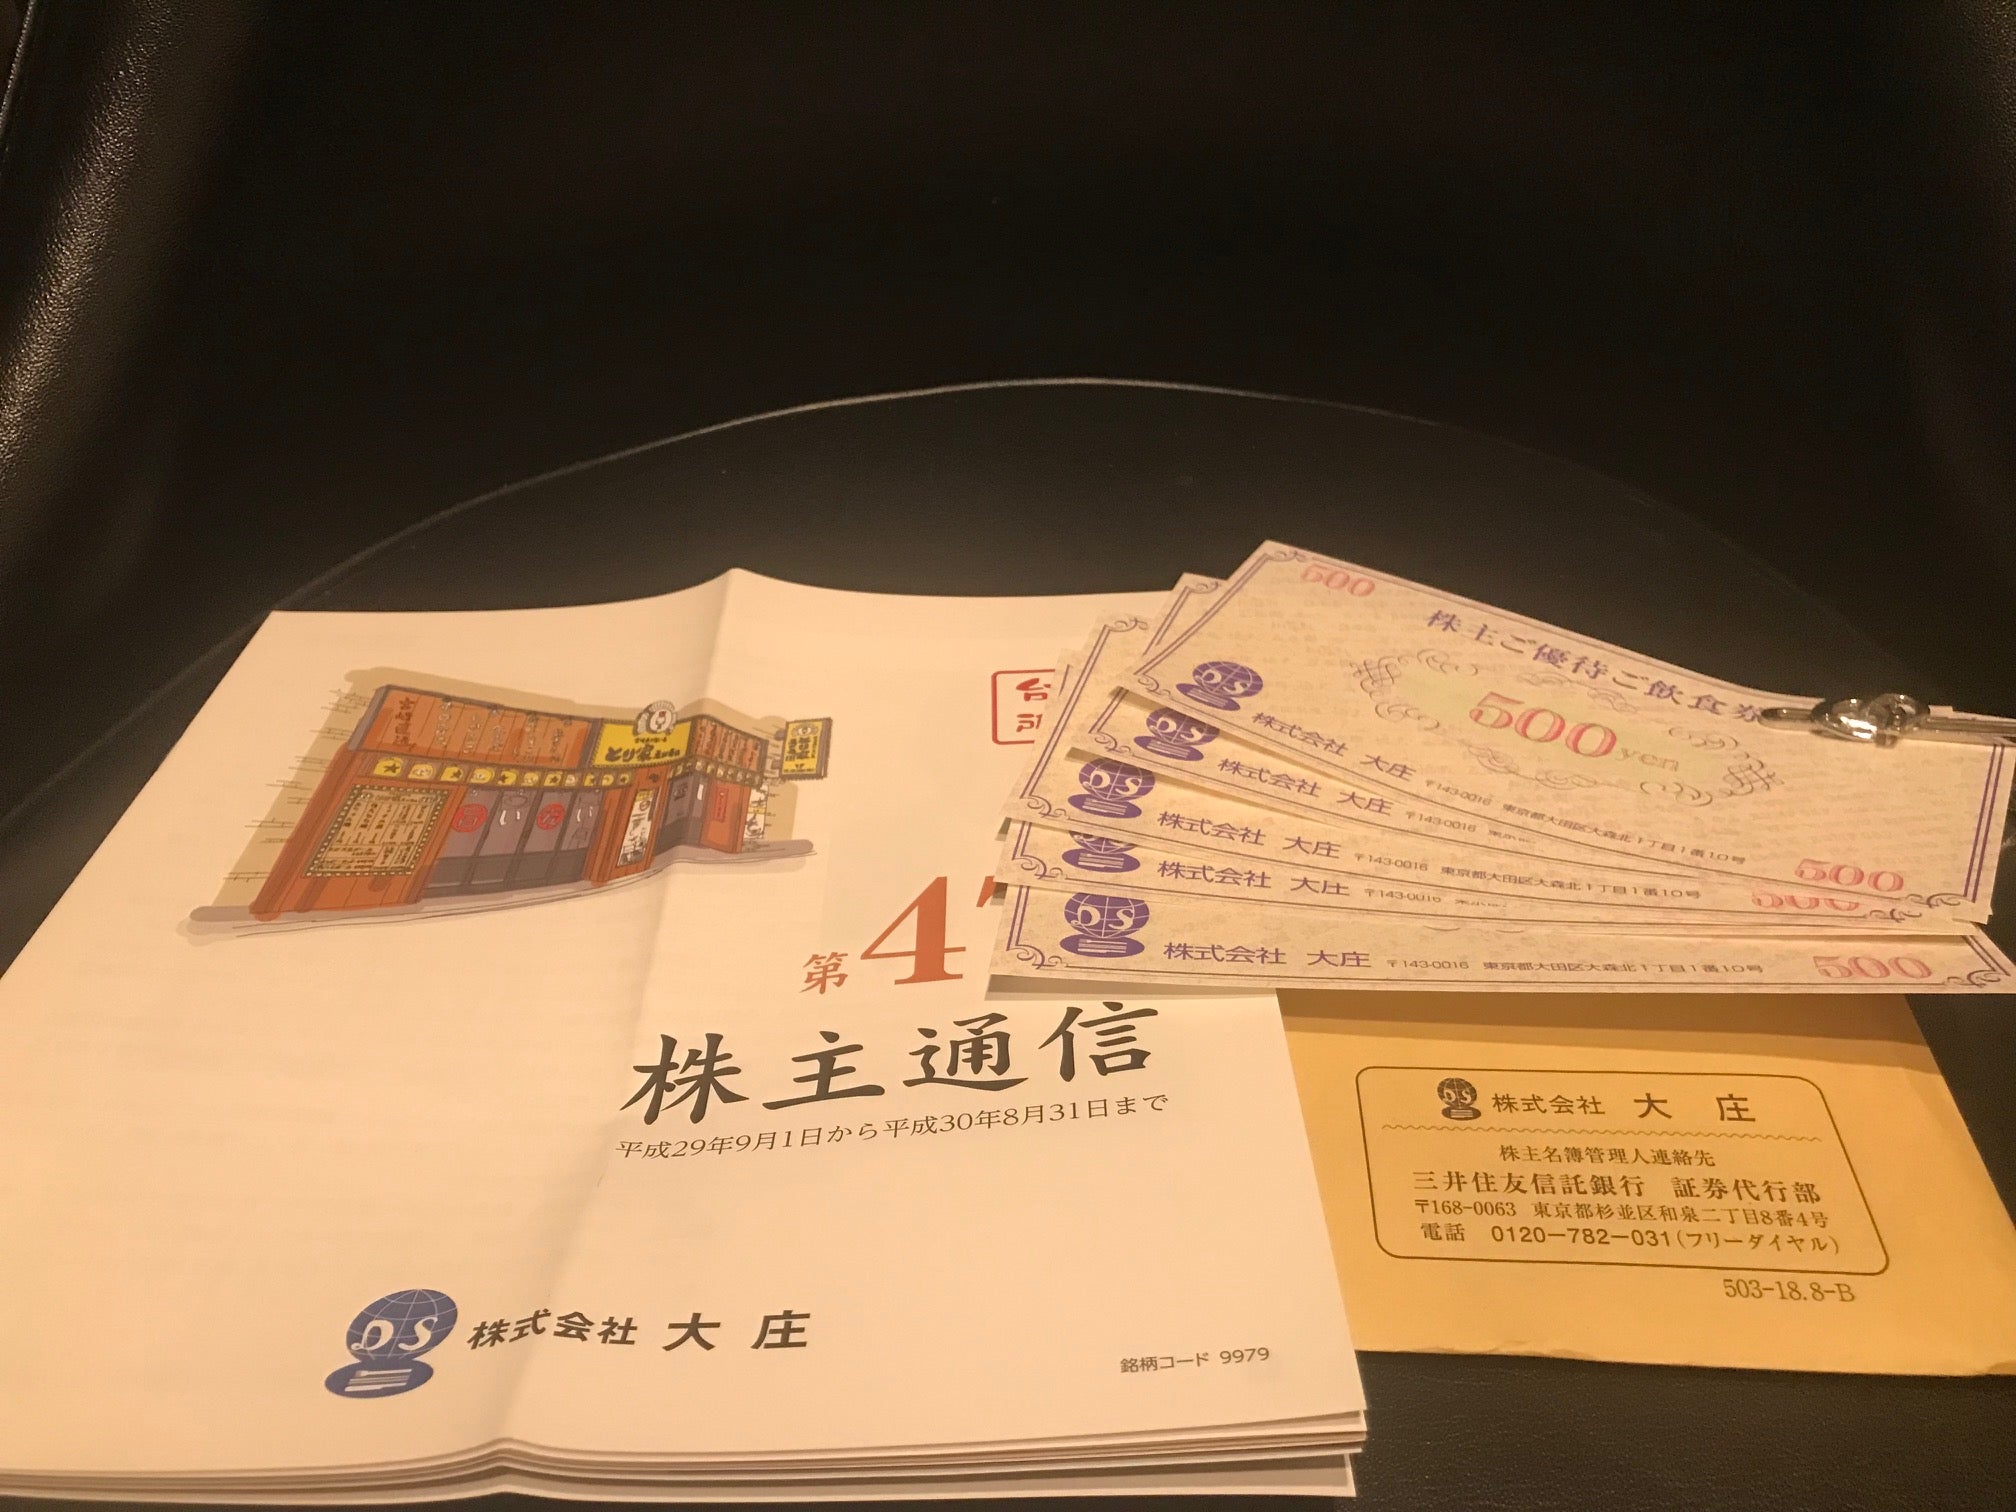 台
所
第4
株主通信
平成29年9月1日から平成30年8月31日まで
DS 株式会社 大庄
銘柄コード 9979
500
株主ご優待ご飲食券
500yen
DS 株式会社 大庄 〒143-0016 東京都大田区大森北1丁目1番10号
500
DS 株式会社 大庄 〒143-0016
500
DS 株式会社 大庄 〒143-0016 東京都大田区大森北1丁目1番10号
株式会社 大庄 〒143-0016
DS 株式会社 大庄 〒143-0016 東京都大田区大森北1丁目1番10号
500
DS 株式会社 大庄
株主名簿管理人連絡先
三井住友信託銀行 証券代行部
〒168-0063 東京都杉並区和泉二丁目8番4号
電話 0120-782-031(フリーダイヤル)
503-18.8-B